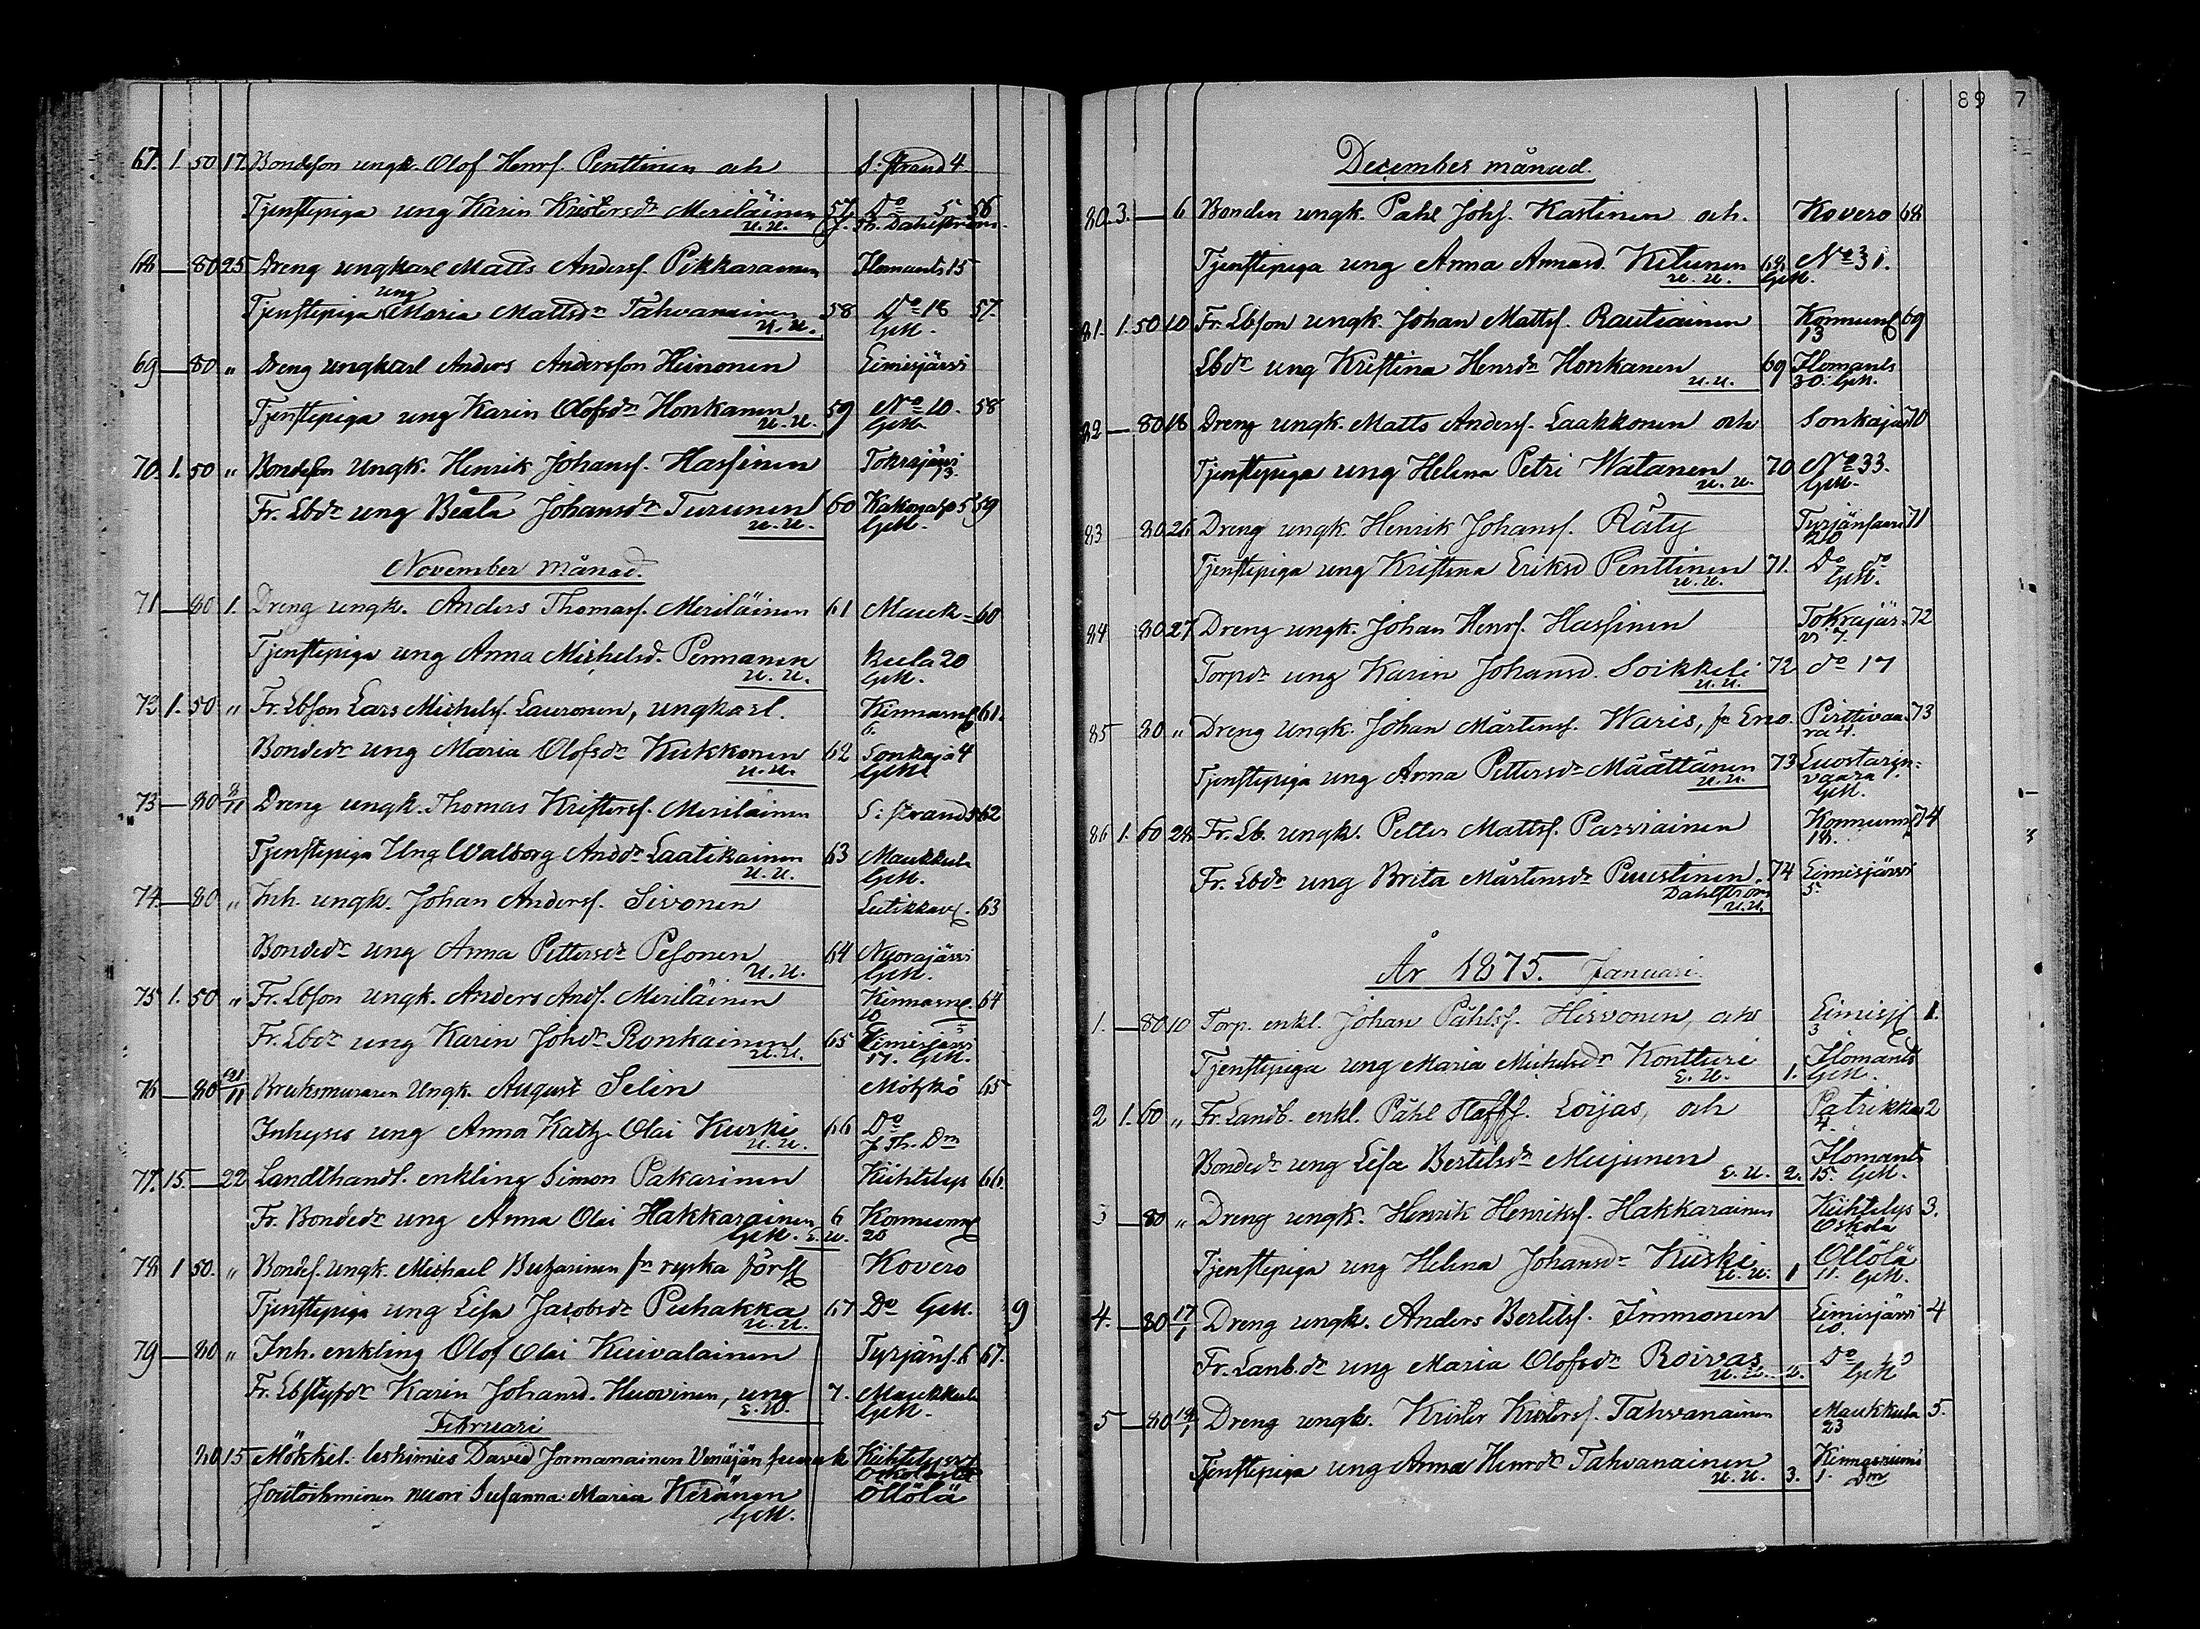 67. 1 50 17. Bondeson ungk. Olof Henrs. Penttinen och S: strand 4.
Tjenstepiga ung Karin Kristersdr Meriläinen 57. Do 5 56
u. u. Th. Dahlström.
68 — 80 25 Dreng ungkarl Matts Anders. Pikkarainen Ilomants 15
ung
Tjenstepiga Maria Mattsdr Tahvanainen 58 Do 18 57.
u. u. GM.
69 — 80 „ Dreng ungkarl Anders Andersson Heinonen Eimisjärvi
Tjenstepiga ung Karin Olofsdr Honkanen 59 No 10. 58
u. u. GM.
70. 1. 50 „ Bondeson Ungk. Henrik Johans. Hassinen Tokrajärvi 3.
Fr. Lbdr ung Beata Johansdr Turunen 60 Kakonaho 5 59
u. u. GM.
November månad.
71 — 80 1. Dreng ungk. Anders Thomas. Meriläinen 61 Mauk= 60
Tjenstepiga ung Anna Michelsd. Pennanen kula 20
u. u. GM.
72 1. 50 „ Fr. Lbson Lars Michels. Lauronen, ungkarl. Kinnarn 61.
6.
Bondedr ung Maria Olofsdr Kukkonen 62 Sonkaja 4
u. u. GM
73 — 80 8/11 Dreng ungk. Thomas Kristers. Meriläinen S: strand 5 62
Tjenstepiga Ung Walborg Andsdr Laatikainen 63 Maukkula
u. u. GM.
74. — 80 „ Inh. ungk. Johan Anders. Sivonen Leitikkav. 63
Bondedr ung Anna Pettersdr Pesonen 64 Nuorajärvi
u. u. GM.
75 1. 50 „ Fr. Lbson ungk. Anders Ands. Meriläinen Kinnarn. 64
10
Fr. Lbdr ung Karin Johdr Ronkainen 65 Eimisjärvi
u. u. 17. GM.
76 — 80 21/11 Bruksmuraren Ungk. August Selin Mötzkö 65
Inhyses ung Anna Kath. Olai Kurki 66 Do
u. u. J Th. Dm
77. 15. — 22 Landthandl. enkling Simon Pakarinen Kiihtelys 66.
Fr. Bondedr ung Anna Olai Hakkarainen 6 Konnunn
GM. E. u. 20
78 1 50. „ Bondes. ungk. Michael Butzarinen fr ryska förs Kovero
Tjenstepiga ung Lisa Jacobsdr Puhakka 67 Do GM. 9
u. u.
79 — 80 „ Inh. enkling Olof Olai Kuivalainen Tyrjäns. 6 67.
Fr. Lbstyfdr Karin Johansd. Huovinen, ung 7. Maukkula
E. u. GM.
Februari
80 15 Mökkil. leskimies David Jormanainen Venäjän Kiihtelysv
Itselöinen nuori Susanna Maria Keränen Ollölä
GM.
89 7
December månad.
80. 3. — 6 Bonden ungk. Pahl Johs. Kastinen och. Kovero 68
Tjenstepiga ung Anna Annasd. Ketunen 68 No 31.
u. u. GM.
81. 1. 50 10 Fr. Lbson ungk. Johan Matts. Rautiainen Konnun 69
13
Lbdr ung Kristina Henrsdr Honkanen 69 Ilomants
u. u. 30. GM.
82 — 80 18 Dreng ungk. Matts Anders. Laakkonen och Sonkaja 70
Tjenstepiga ung Helena Petri Watanen 70 No 33.
u. u. GM.
83 80 26 Dreng ungk. Henrik Johans. Räty Tyrjänsaari 71
20
Tjenstepiga ung Kristina Eriksd Penttinen 71. Do do
u. u. GM.
84 80 27 Dreng ungk. Johan Henrs. Hassinen Tokrajär= 72
vi 7.
Torpdr ung Karin Johansd. Soikkeli 72 do 17
u. u.
85 80 „ Dreng ungk. Johan Mårtens. Waris, fr Eno. Pirttivaa= 73
ra 4.
Tjenstepiga ung Anna Pettersdr Määttänen 73 Luostarin=
u. u. vaara.
GM.
86 1. 60 28. Fr. Lb. ungk. Petter Matts. Parviainen Konnunn 74
18.
Fr. Lbdr ung Brita Mårtensdr Puustinen. 74 Eimisjärvi
Dahlström 5
u. u.
År 1875. Januari.
1. — 80 10 Torp. enkl. Johan Påhls. Hirvonen, och Eimisj 1.
3
Tjenstepiga ung Maria Michelsdr Kontturi 1. Ilomants
E. u. GM.
2 1. 60 „ Fr. Landb. enkl. Påhl Staff. Loijas, och Patrikka 2
4.
Bondedr ung Lisa Bertilsdr Mujunen Ilomants
E. u. 2. 15. GM.
3 — 80 „ Dreng ungk. Henrik Henriks. Hakkarainen Kiihtelys 3.
Oskola
Tjenstepiga ung Helena Johansdr Kurki 1 Ollölä
u. u. 11. GM.
4. — 80 17/1 Dreng ungk. Anders Bertils. Immonen Eimisjärvi 4
10.
Fr. Lanb.dr ung Maria Olofsdr Roivas 2. Do 10
u. u. GM
5 — 80 18/1 Dreng ungk. Krister Kristers. Tahvanainen Maukkula 5.
23
Tjenstepiga ung Anna Henrdr Tahvanainen 3. Kinnasniemi
u. u. 1. Dm